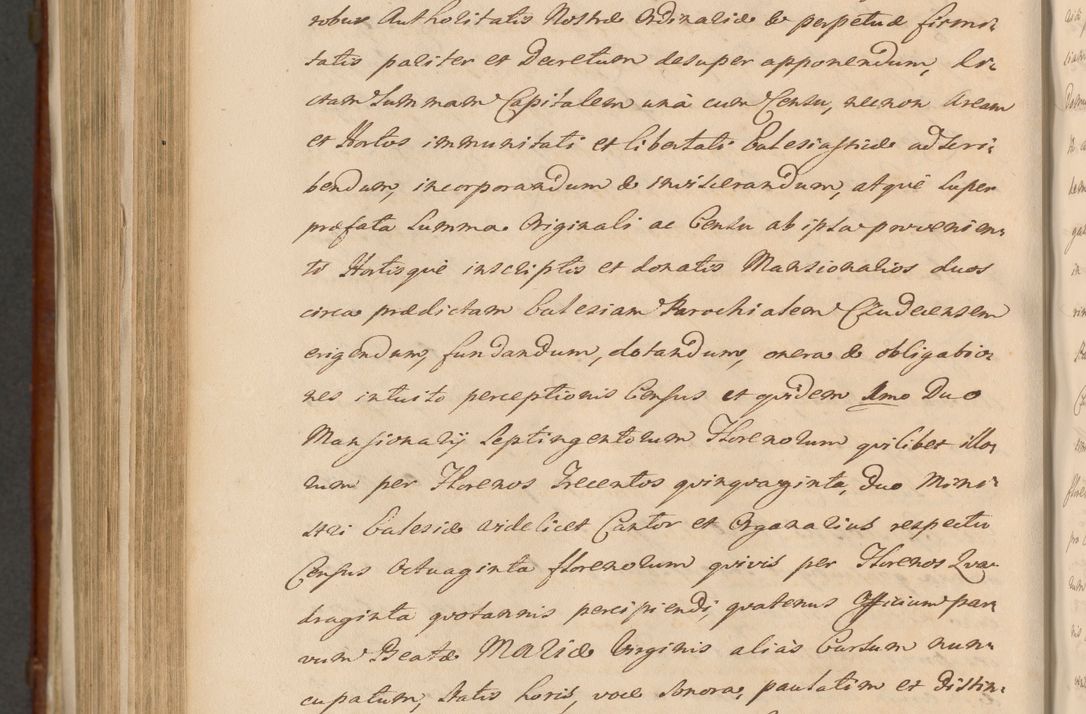 robur Authoritatis Nostræ Ordinariæ & perpetuæ firmi¬
tatis pariter et Decretum desuper apponendum, di¬
ctam Summam Capitalem unà cum Censu, necnon Aream
et Hortos immunitati et libertati Ecclesiasticæ adscri¬
bendum, incorporandum & inviscerandum, atquè super
præfata Summa Originali ac Censu ab ipsa provenien¬
te Hortisquè inscriptis et donatis Mansionarios duos
circa prædictam Ecclesiam Parochialem Czudecensem
erigendum, fundandum, dotandum, onera & obligatio¬
nes intuitu perceptionis Census et quidem 1mo Duo
Mansionarij Septingentorum Florenorum quilibet illo¬
rum per Florenos Trecentos quinquaginta, Duo Mini¬
stri Ecclesiæ videlicet Cantor et Organarius respectu
Census Octuaginta florenorum quivis per Florenos Qua¬
draginta quotannis percipiendi, quatenus Officium par¬
vum Beatæ MARIÆ Virginis aliàs Cursum nun¬
cupatum, statis horis, voce sonora, paulatim et distin¬